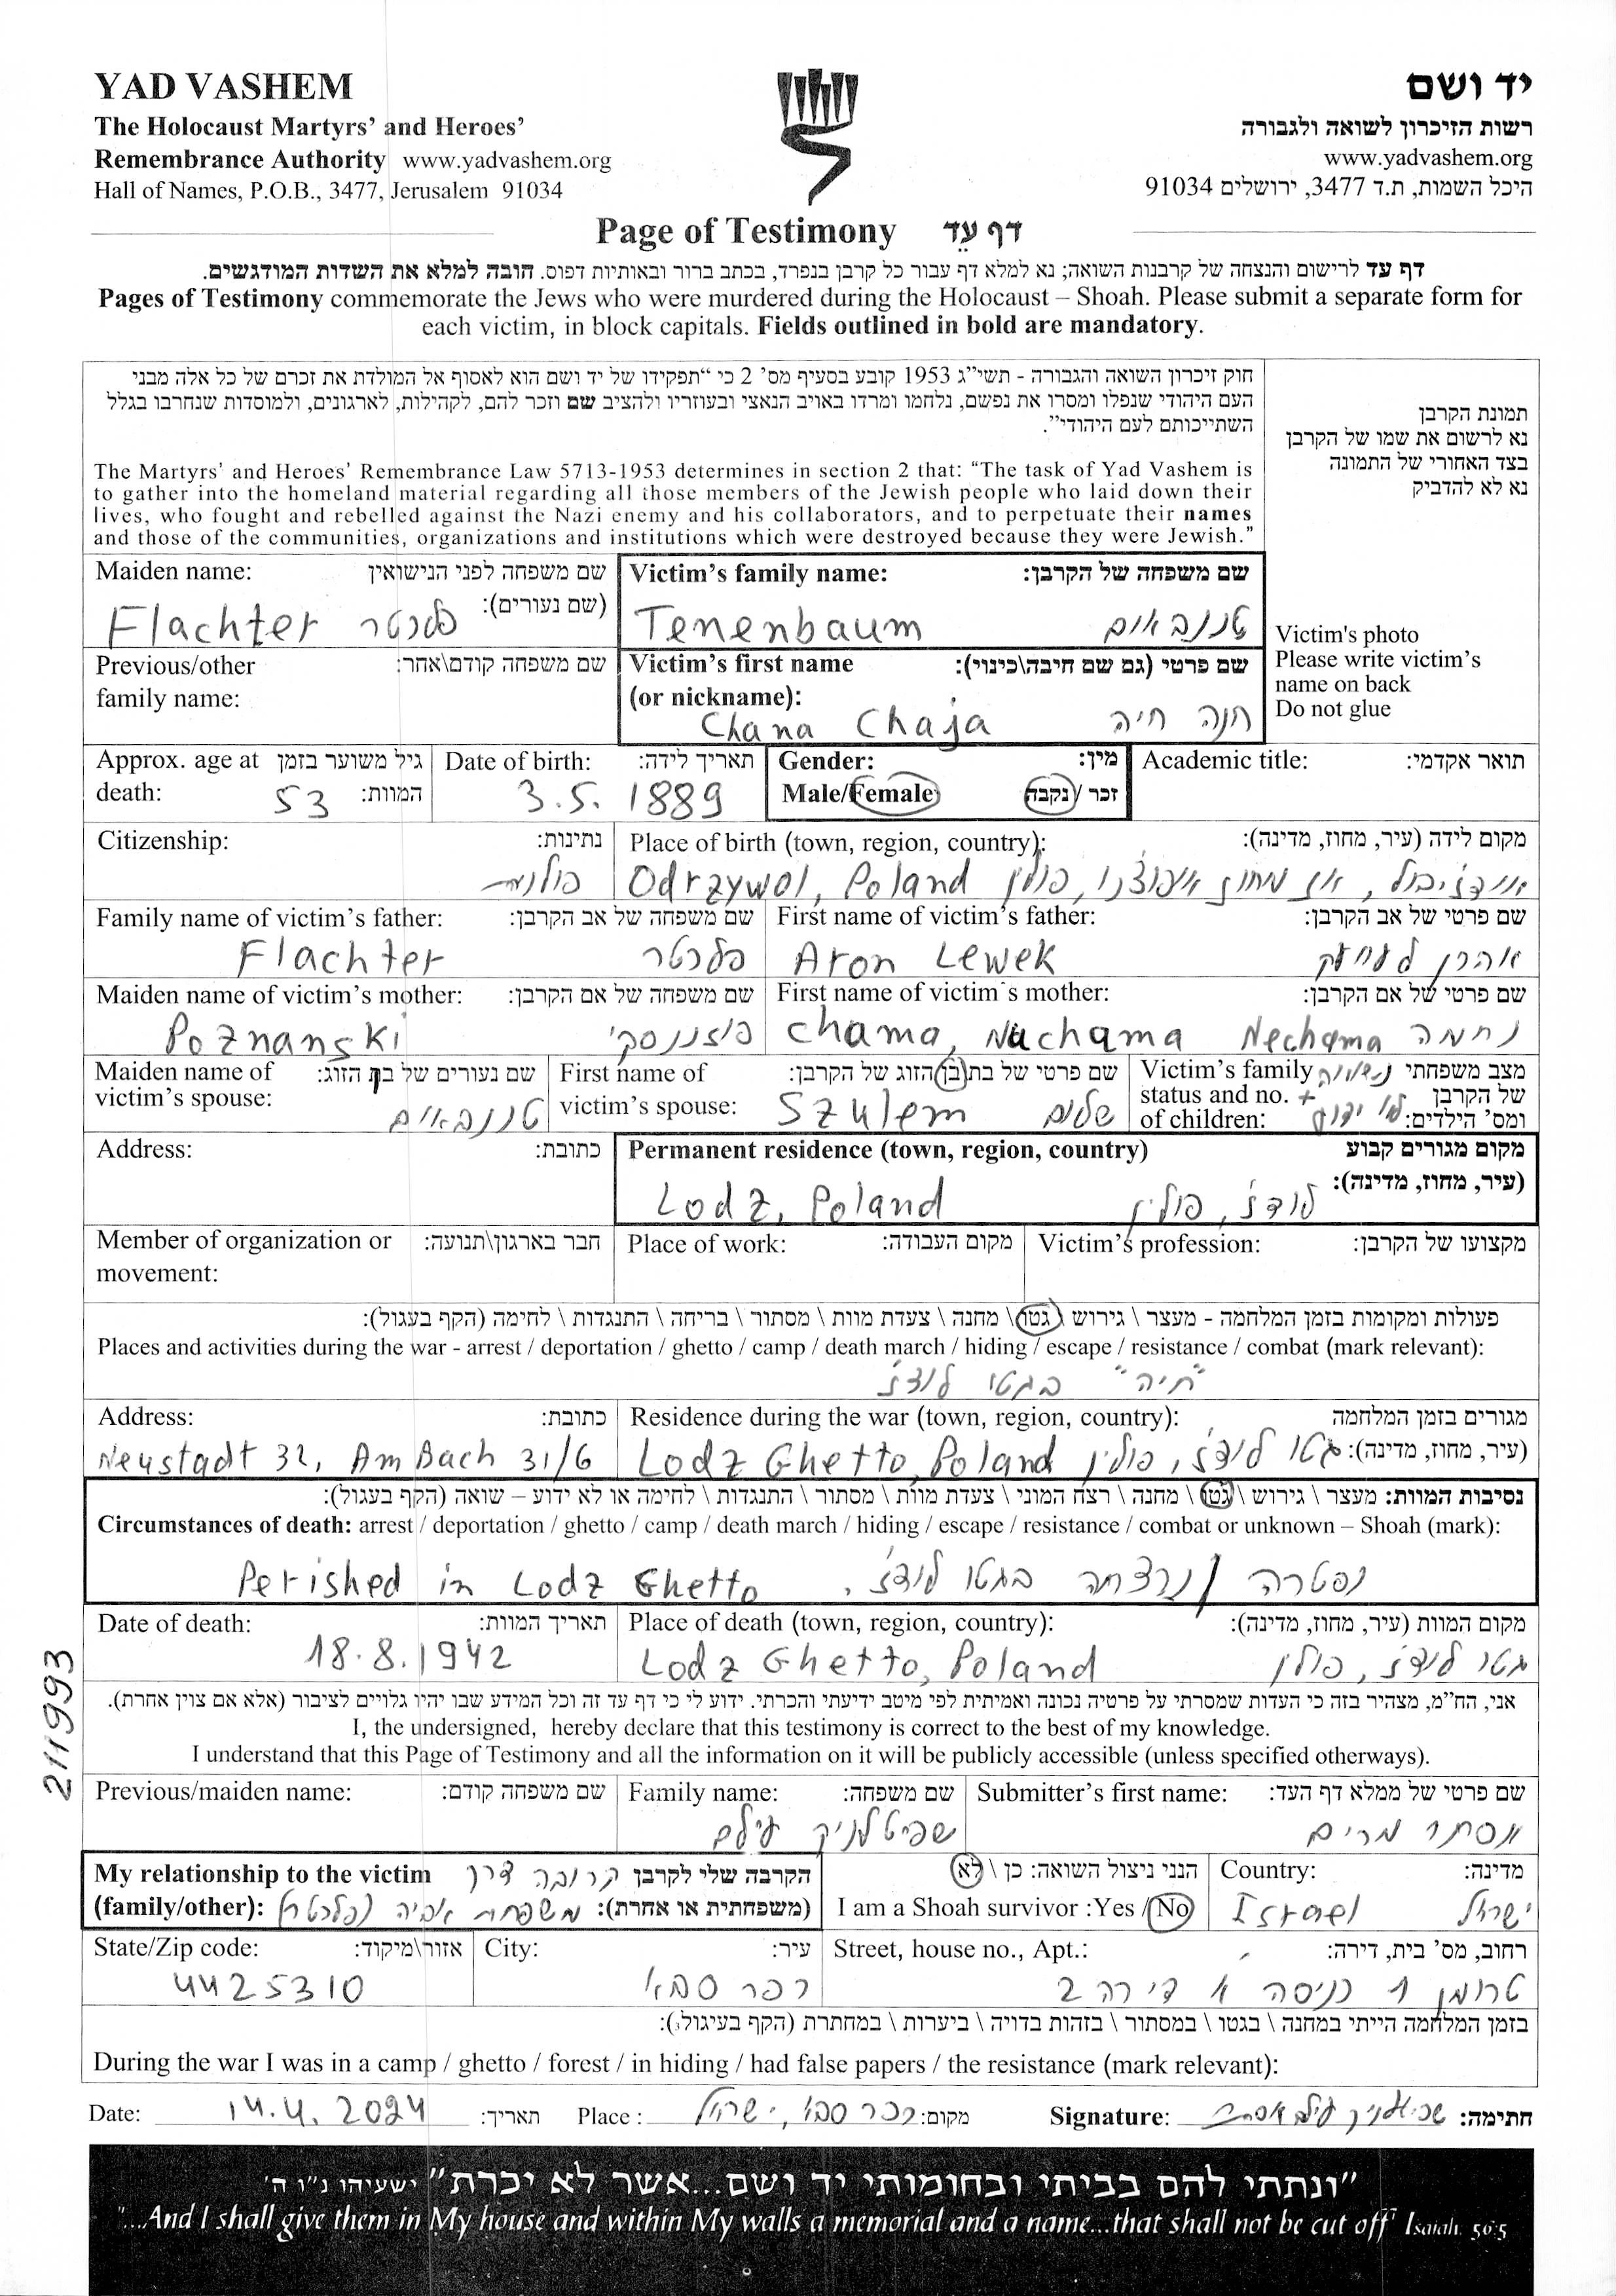 YAD VASHEM
The Holocaust Martyrs' and Heroes'
Remembrance Authority www.yadvashem.org
Hall of Names, P.O.B., 3477, Jerusalem 91034
יד ושם
רשות הזיכרון לשואה ולגבורה
www.yadvashem.org
היכל השמות, ת.ד 3477, ירושלים 91034
Page of Testimony דף עֵד
דף עד לרישום והנצחה של קרבנות השואה; נא למלא דף עבור כל קרבן בנפרד, בכתב ברור ובאותיות דפוס. חובה למלא את השדות המודגשים.
Pages of Testimony commemorate the Jews who were murdered during the Holocaust – Shoah. Please submit a separate form for
each victim, in block capitals. Fields outlined in bold are mandatory.
חוק זיכרון השואה והגבורה - תשי"ג 1953 קובע בסעיף מס' 2 כי "תפקידו של יד ושם הוא לאסוף אל המולדת את זכרם של כל אלה מבני
העם היהודי שנפלו ומסרו את נפשם, נלחמו ומרדו באויב הנאצי ובעוזריו ולהציב שם וזכר להם, לקהילות, לארגונים, ולמוסדות שנחרבו בגלל
השתייכותם לעם היהודי".
The Martyrs' and Heroes' Remembrance Law 5713-1953 determines in section 2 that: "The task of Yad Vashem is
to gather into the homeland material regarding all those members of the Jewish people who laid down their
lives, who fought and rebelled against the Nazi enemy and his collaborators, and to perpetuate their names
and those of the communities, organizations and institutions which were destroyed because they were Jewish."
תמונת הקרבן
נא לרשום את שמו של הקרבן
בצד האחורי של התמונה
נא לא להדביק
Victim's photo
Please write victim's
name on back
Do not glue
Maiden name: שם משפחה לפני הנישואין
(שם נעורים):
Flachter פלכטר
Victim's family name: שם משפחה של הקרבן:
Tenenbaum טננבאום
Previous/other שם משפחה קודם\אחר:
family name:
Victim's first name שם פרטי (גם שם חיבה\כינוי):
(or nickname):
Chana Chaja חנה חיה
Approx. age at גיל משוער בזמן
death: 53 המוות:
Date of birth: תאריך לידה:
3.5. 1889
Gender: מין:
Male/Female זכר / נקבה
Academic title: תואר אקדמי:
Citizenship: נתינות:
פולנית
Place of birth (town, region, country): מקום לידה (עיר, מחוז, מדינה):
Odrzywol, Poland פולין
Family name of victim's father: שם משפחה של אב הקרבן:
Flachter פלכטר
First name of victim's father: שם פרטי של אב הקרבן:
Aron Lewek אהרן לעוועק
Maiden name of victim's mother: שם משפחה של אם הקרבן:
Poznanski פוזננסקי
First name of victim's mother: שם פרטי של אם הקרבן:
Chama, Nuchama Nechama נחמה
Maiden name of שם נעורים של בן הזוג:
victim's spouse: טננבאום
First name of שם פרטי של בת\בן הזוג של הקרבן:
victim's spouse: Szulem שלום
Victim's family מצב משפחתי נשואה
status and no. + של הקרבן
of children: ומס' הילדים: לא ידוע
Address: כתובת:
Permanent residence (town, region, country) מקום מגורים קבוע
(עיר, מחוז, מדינה):
Lodz, Poland לודז', פולין
Member of organization or חבר בארגון\תנועה:
movement:
Place of work: מקום העבודה:
Victim's profession: מקצועו של הקרבן:
פעולות ומקומות בזמן המלחמה - מעצר \ גירוש \ גטו \ מחנה \ צעדת מוות \ מסתור \ בריחה \ התנגדות \ לחימה (הקף בעגול):
Places and activities during the war - arrest / deportation / ghetto / camp / death march / hiding / escape / resistance / combat (mark relevant):
"חיה" בגטו לודז'
Address: כתובת:
Neustadt 32, Am Bach 31/6
Residence during the war (town, region, country): מגורים בזמן המלחמה
(עיר, מחוז, מדינה):
Lodz Ghetto, Poland גטו לודז', פולין
נסיבות המוות: מעצר \ גירוש \ גטו \ מחנה \ רצח המוני \ צעדת מוות \ מסתור \ התנגדות \ לחימה או לא ידוע – שואה (הקף בעגול):
Circumstances of death: arrest / deportation / ghetto / camp / death march / hiding / escape / resistance / combat or unknown – Shoah (mark):
Perished in Lodz Ghetto נפטרה / נרצחה בגטו לודז'.
Date of death: תאריך המוות:
18.8.1942
Place of death (town, region, country): מקום המוות (עיר, מחוז, מדינה):
Lodz Ghetto, Poland גטו לודז', פולין
211993
אני, הח"מ, מצהיר בזה כי העדות שמסרתי על פרטיה נכונה ואמיתית לפי מיטב ידיעתי והכרתי. ידוע לי כי דף עד זה וכל המידע שבו יהיו גלויים לציבור (אלא אם צוין אחרת).
I, the undersigned, hereby declare that this testimony is correct to the best of my knowledge.
I understand that this Page of Testimony and all the information on it will be publicly accessible (unless specified otherways).
Previous/maiden name: שם משפחה קודם:
Family name: שם משפחה:
שפיטלניק
Submitter's first name: שם פרטי של ממלא דף העד:
אסתר מרים
My relationship to the victim הקרבה שלי לקרבן קרובה דרך
(family/other): (משפחתית או אחרת): משפחת אביה (פלכטר)
I am a Shoah survivor :Yes / No הנני ניצול השואה: כן \ לא
Country: מדינה:
Israel ישראל
State/Zip code: אזור\מיקוד:
4425310
City: עיר:
כפר סבא
Street, house no., Apt.: רחוב, מס' בית, דירה:
טרומן 1 כניסה א דירה 2
בזמן המלחמה הייתי במחנה \ בגטו \ במסתור \ בזהות בדויה \ ביערות \ במחתרת (הקף בעיגול):
During the war I was in a camp / ghetto / forest / in hiding / had false papers / the resistance (mark relevant):
Date: 14.4.2024 תאריך: Place : כפר סבא, ישראל מקום: Signature: חתימה:
"ונתתי להם בביתי ובחומותי יד ושם...אשר לא יכרת" ישעיהו נ"ו ה'
"...And I shall give them in My house and within My walls a memorial and a name...that shall not be cut off" Isaiah. 56:5